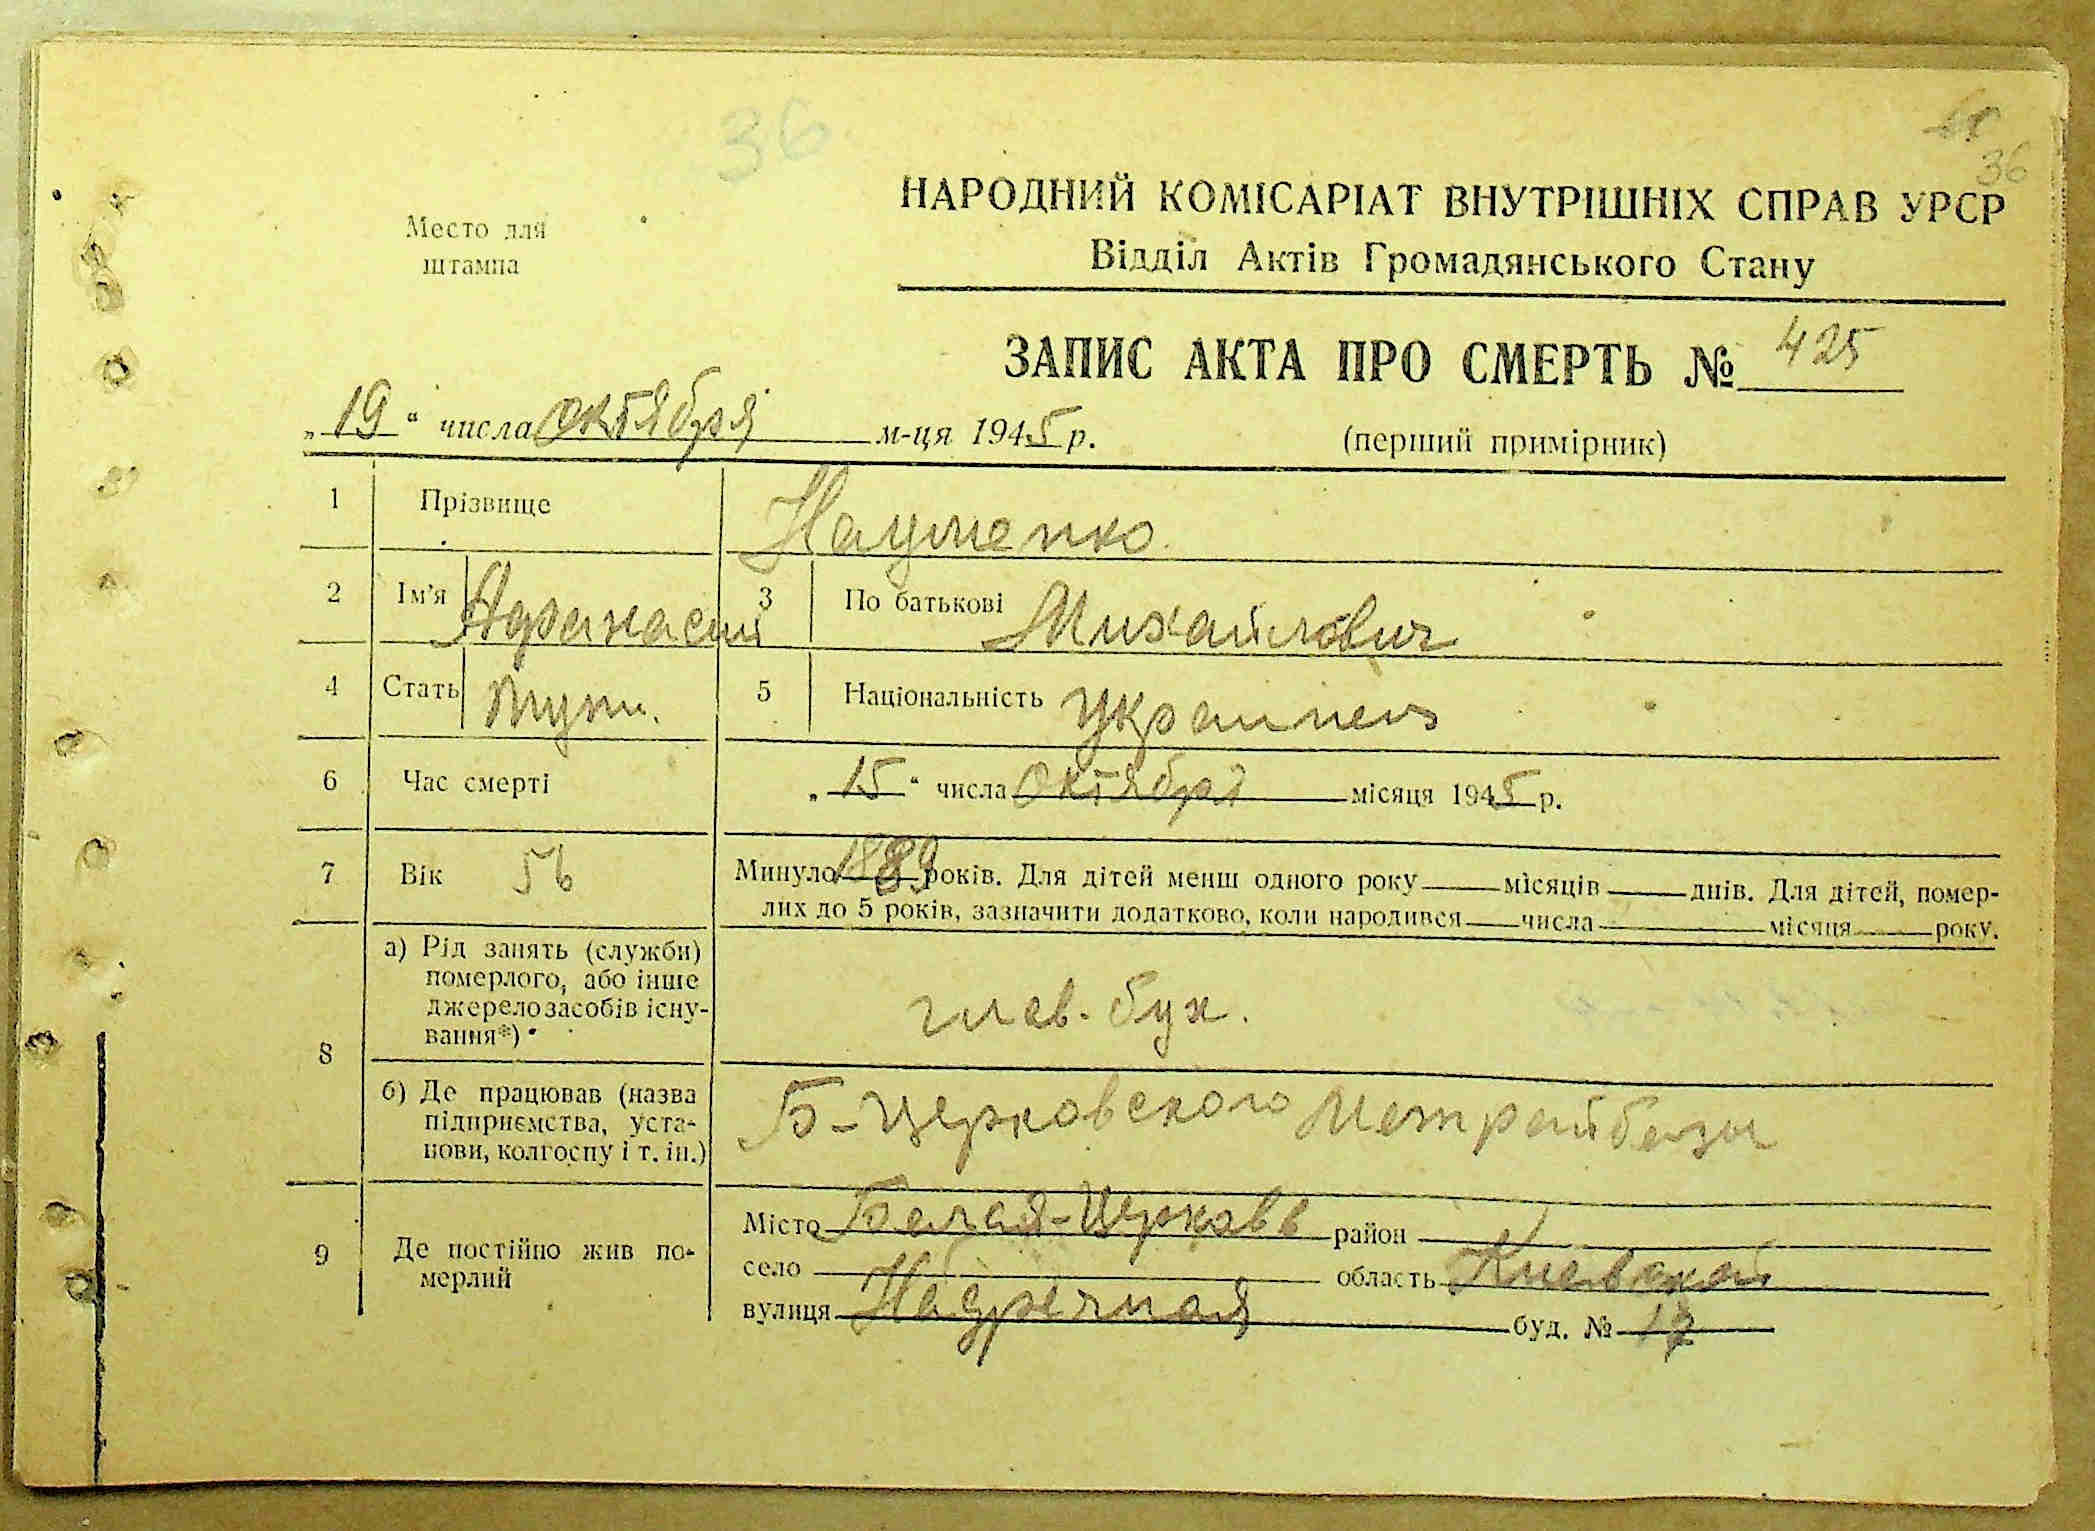 36
36
Место для
штампа
НАРОДНИЙ КОМІСАРІАТ ВНУТРІШНІХ СПРАВ УРСР
Відділ Актів Громадянського Стану
ЗАПИС АКТА ПРО СМЕРТЬ № 425
„19“ числа Октября м-ця 1945 р. (перший примірник)
1 Прізвище Науменко
2 Ім'я Афанасий 3 По батькові Михайлович
4 Стать муж. 5 Національність Украинец
6 Час смерті „15“ числа Октября місяця 1945 р.
7 Вік 56 Минуло 1889 років. Для дітей менш одного року місяців днів. Для дітей, помер-
лих до 5 років, зазначити додатково, коли народився числа місяця року.
8 а) Рід занять (служби)
померлого, або інше
джерело засобів існу-
вання*)
глав. бух.
б) Де працював (назва
підприємства, уста-
нови, колгоспу і т. ін.)
Б-Церковского Межрайбазы
9 Де постійно жив по-
мерлий
Місто Белая-Церковь район
село область Киевская
вулиця Надречная буд. № 17